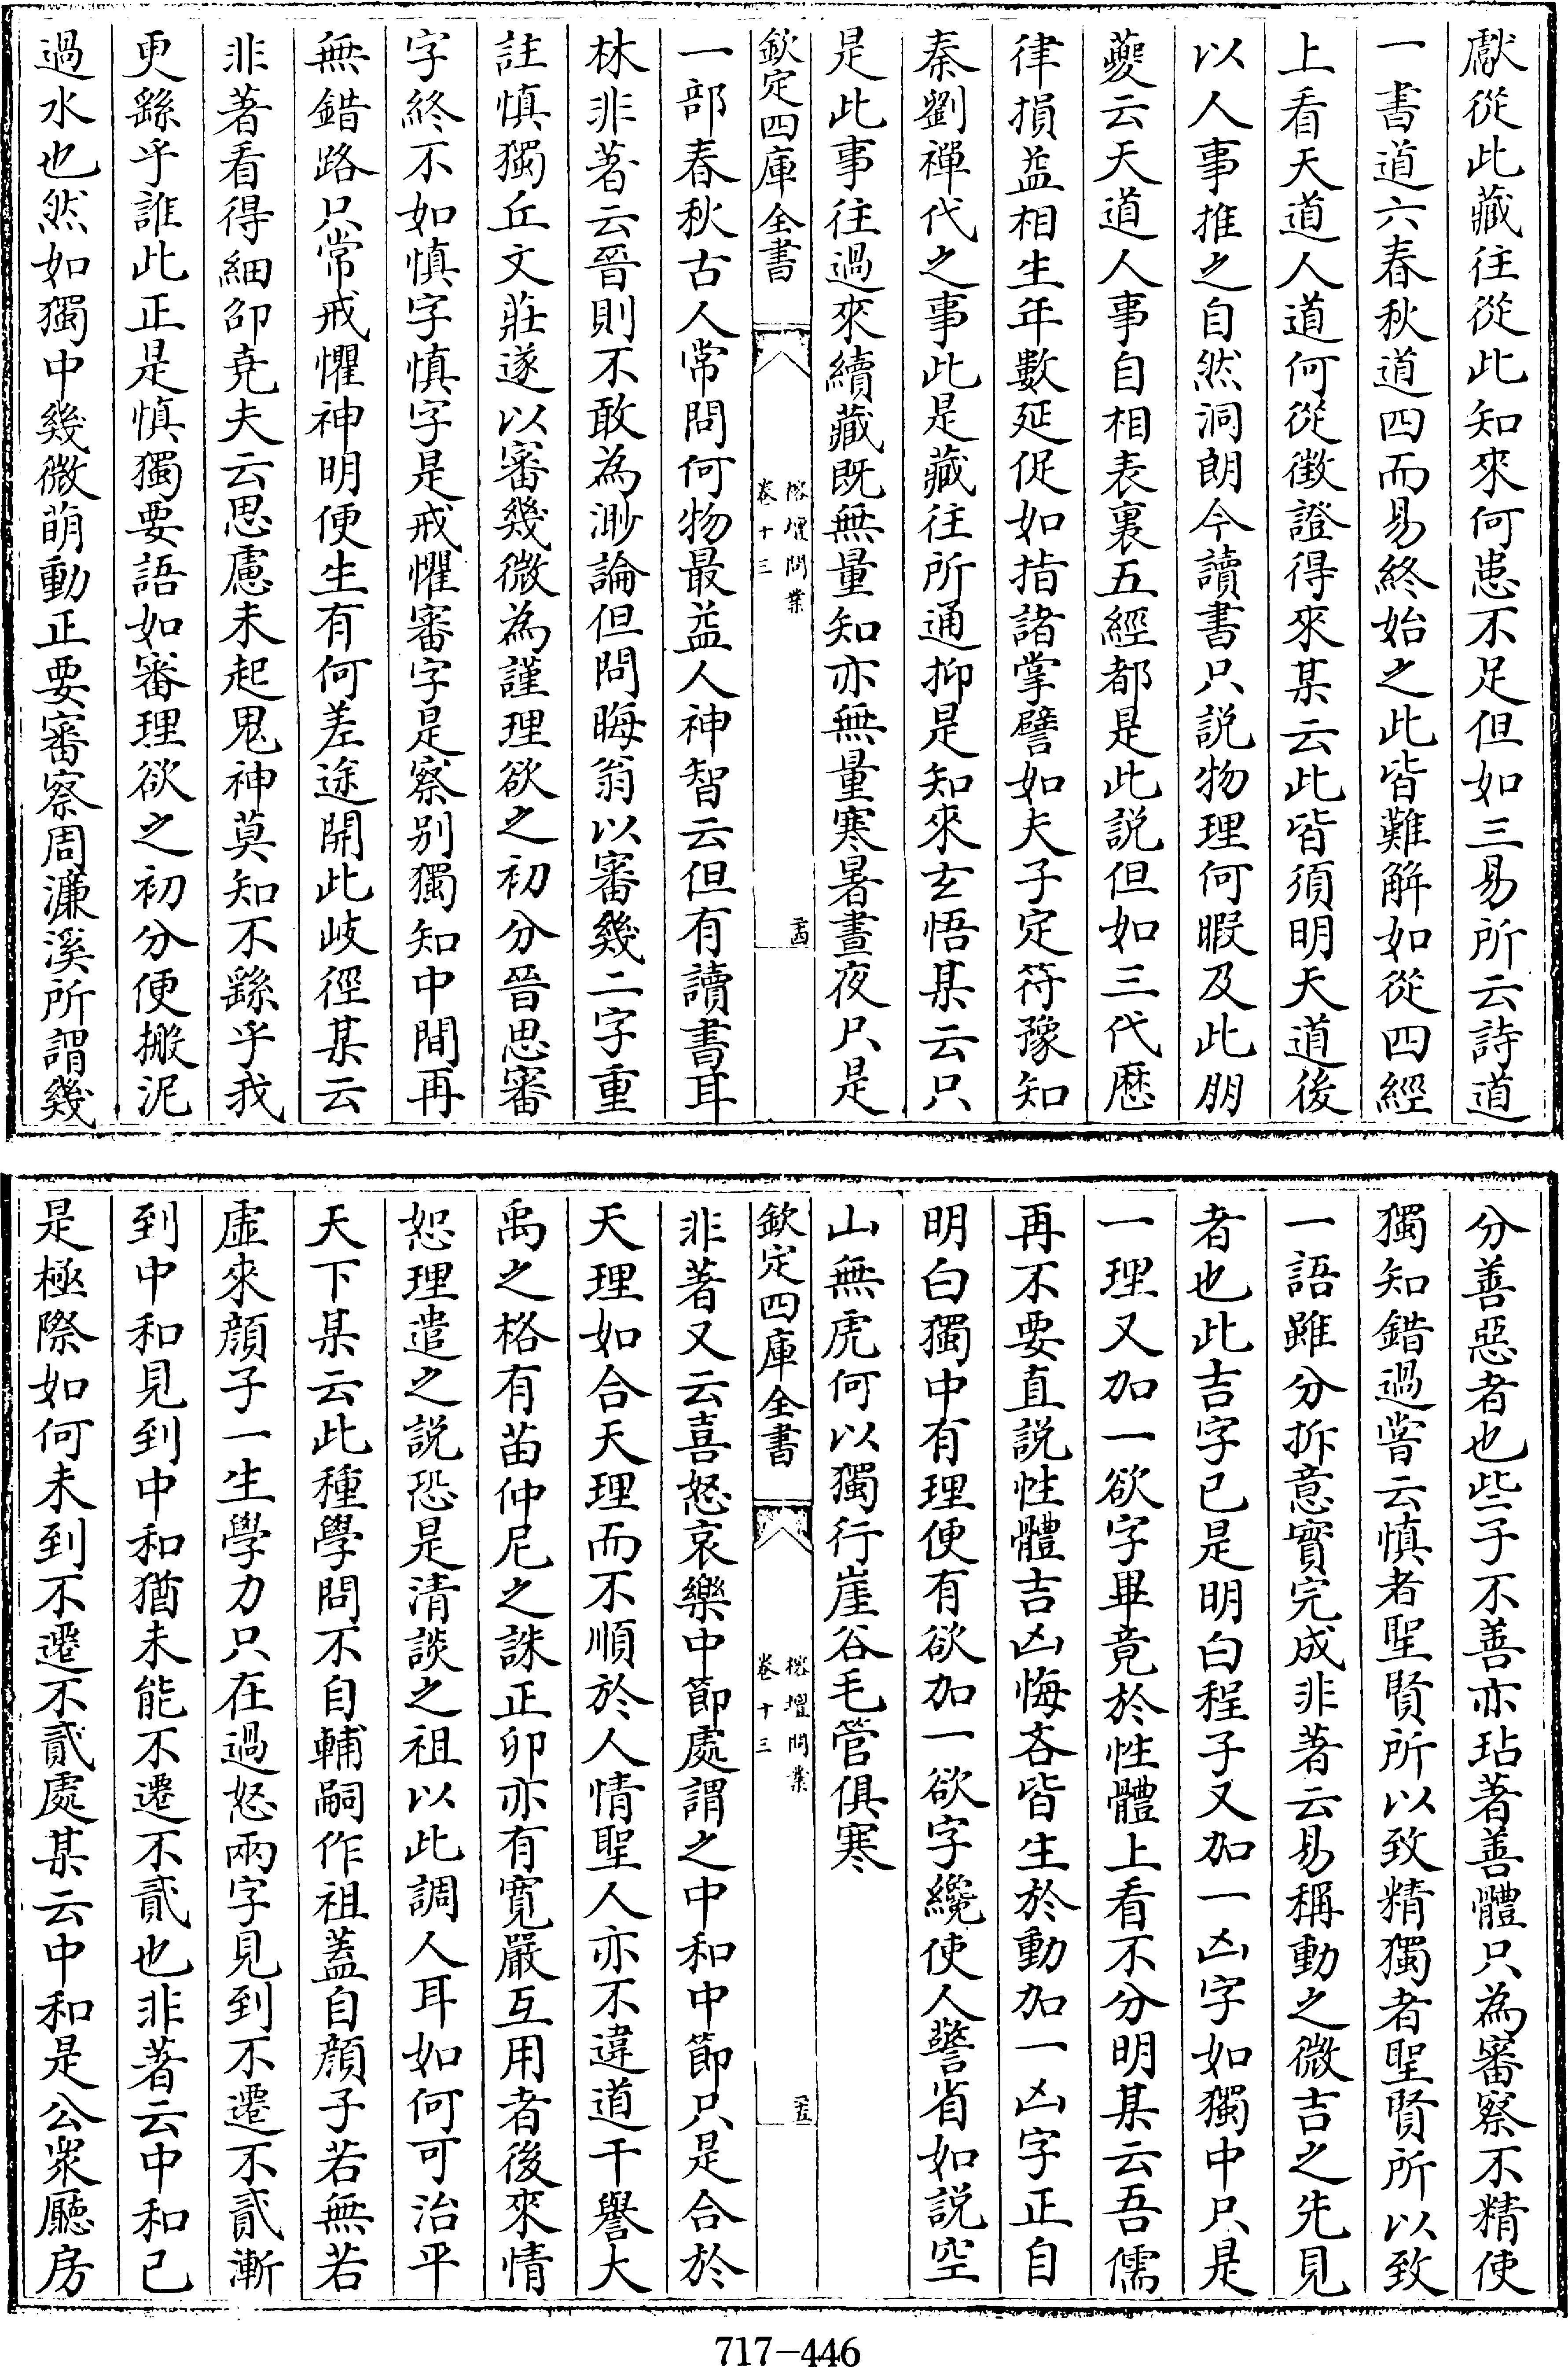 獻從此藏往從此知來何患不足但如三易所云詩道
一書道六春秋道四而易終始之此皆難解如從四經
上看天道人道何從徵證得來某云此皆須明天道後
以人事推之自然洞朗今讀書只説物理何暇及此朋
夔云天道人事自相表裏五經都是此説但如三代厯
律損益相生年數延促如指諸掌譬如夫子定符豫知
秦劉禪代之事此是藏往所通抑是知來玄悟某云只
是此事往過來續藏既無量知亦無量寒暑晝夜只是
欽定四庫全書
榕壇問業
卷十三
一部春秋古人常問何物最益人神智云但有讀書耳
林非著云晉則不敢為渺論但問晦翁以審幾二字重
註慎獨丘文莊遂以審幾微為謹理欲之初分晉思審
字終不如慎字慎字是戒懼審字是察别獨知中間再
無錯路只常戒懼神明便生有何差途開此岐徑某云
非著看得細邵堯夫云思慮未起鬼神莫知不繇乎我
更繇乎誰此正是慎獨要語如審理欲之初分便撇泥
過水也然如獨中幾微萌動正要審察周濂溪所謂幾
分善惡者也些子不善亦玷著善體只為審察不精使
獨知錯過嘗云慎者聖賢所以致精獨者聖賢所以致
一語雖分拆意實完成非著云易稱動之微吉之先見
者也此吉字已是明白程子又加一凶字如獨中只是
一理又加一欲字畢竟於性體上看不分明某云吾儒
再不要直説性體吉凶悔吝皆生於動加一凶字正自
明白獨中有理便有欲加一欲字纔使人警省如説空
山無虎何以獨行崖谷毛管俱寒
欽定四庫全書
榕壇問業
卷十三
非著又云喜怒哀樂中節處謂之中和中節只是合於
天理如合天理而不順於人情聖人亦不違道干譽大
禹之格有苗仲尼之誅正卯亦有寛嚴互用者後來情
恕理遣之説恐是清談之祖以此調人耳如何可治平
天下某云此種學問不自輔嗣作祖蓋自顔子若無若
虛來顔子一生學力只在過怒兩字見到不遷不貳漸
到中和見到中和猶未能不遷不貳也非著云中和已
是極際如何未到不遷不貳處某云中和是公衆廳房
717-446